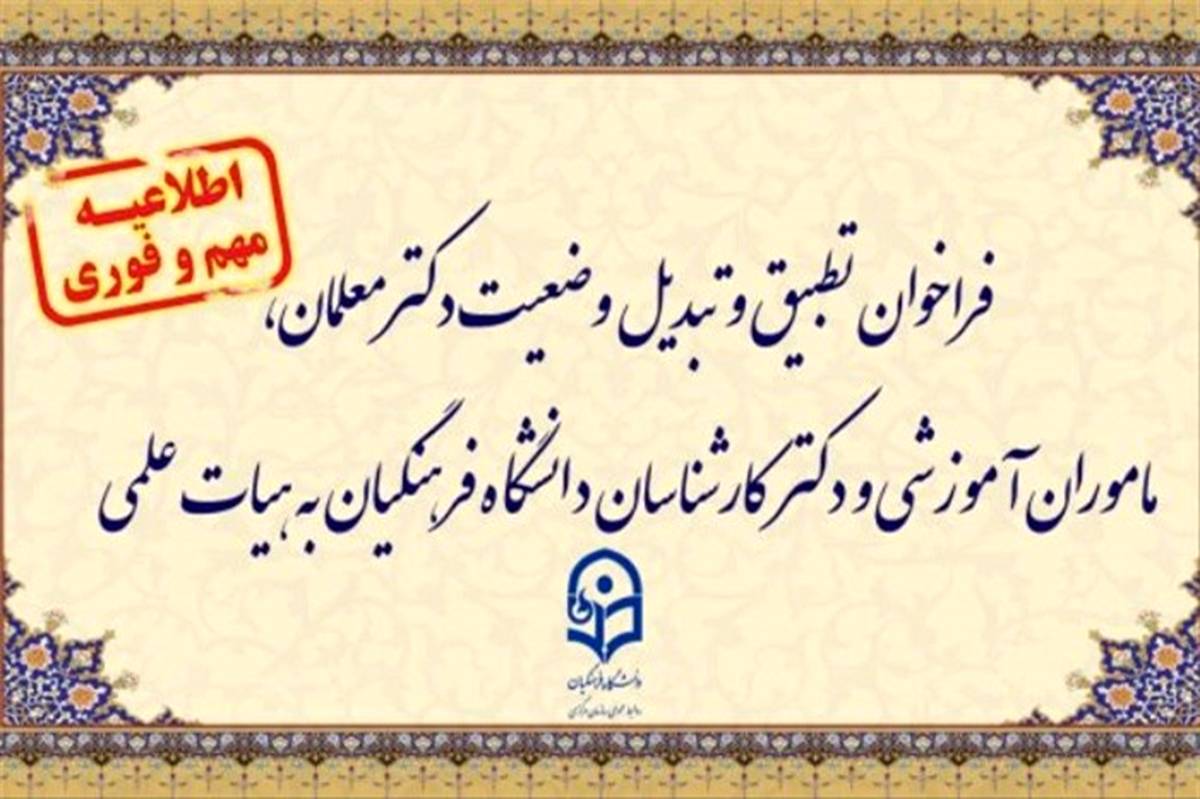 اطلاعیه
مهم و فوری
فراخوان تطبیق و تبدیل وضعیت دکتر معلمان،
ماموران آموزشی و دکتر کارشناسان دانشگاه فرهنگیان به هیات علمی
دانشگاه فرهنگیان
روابط عمومی سازمان مرکزی